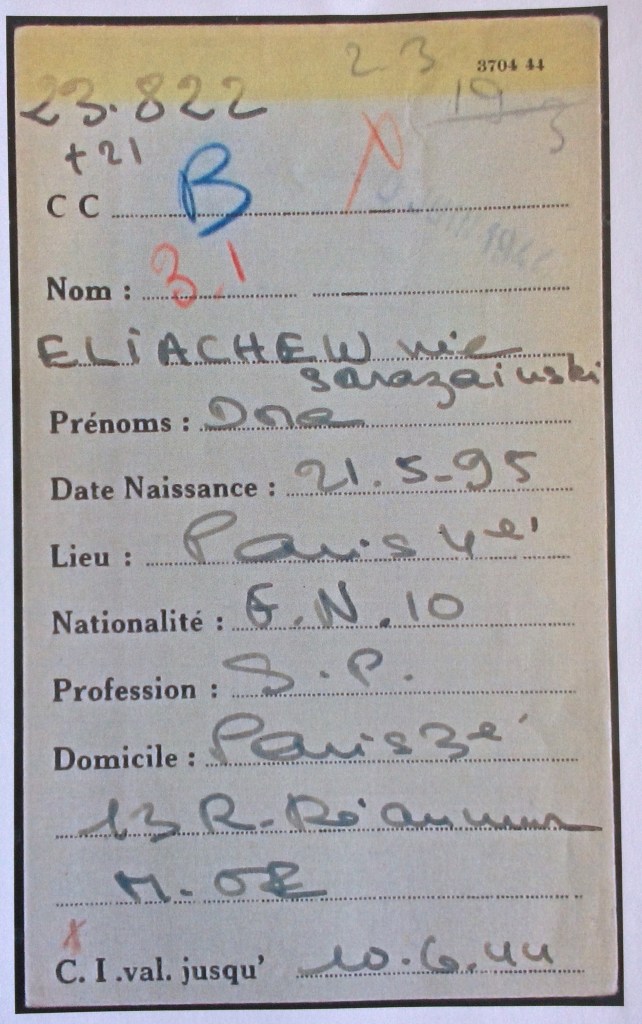 2.3 3704 44
23.822 19
+21 3
C C B
1944
Nom : 3.1
ELIACHEW née
Sarazainski
Prénoms : Dora
Date Naissance : 21.5-95
Lieu : Paris 4e
Nationalité : F.N.10
Profession : S.P.
Domicile : Paris 3e
13 R. Réaumur
M. OE
C. I .val. jusqu' 10.6.44